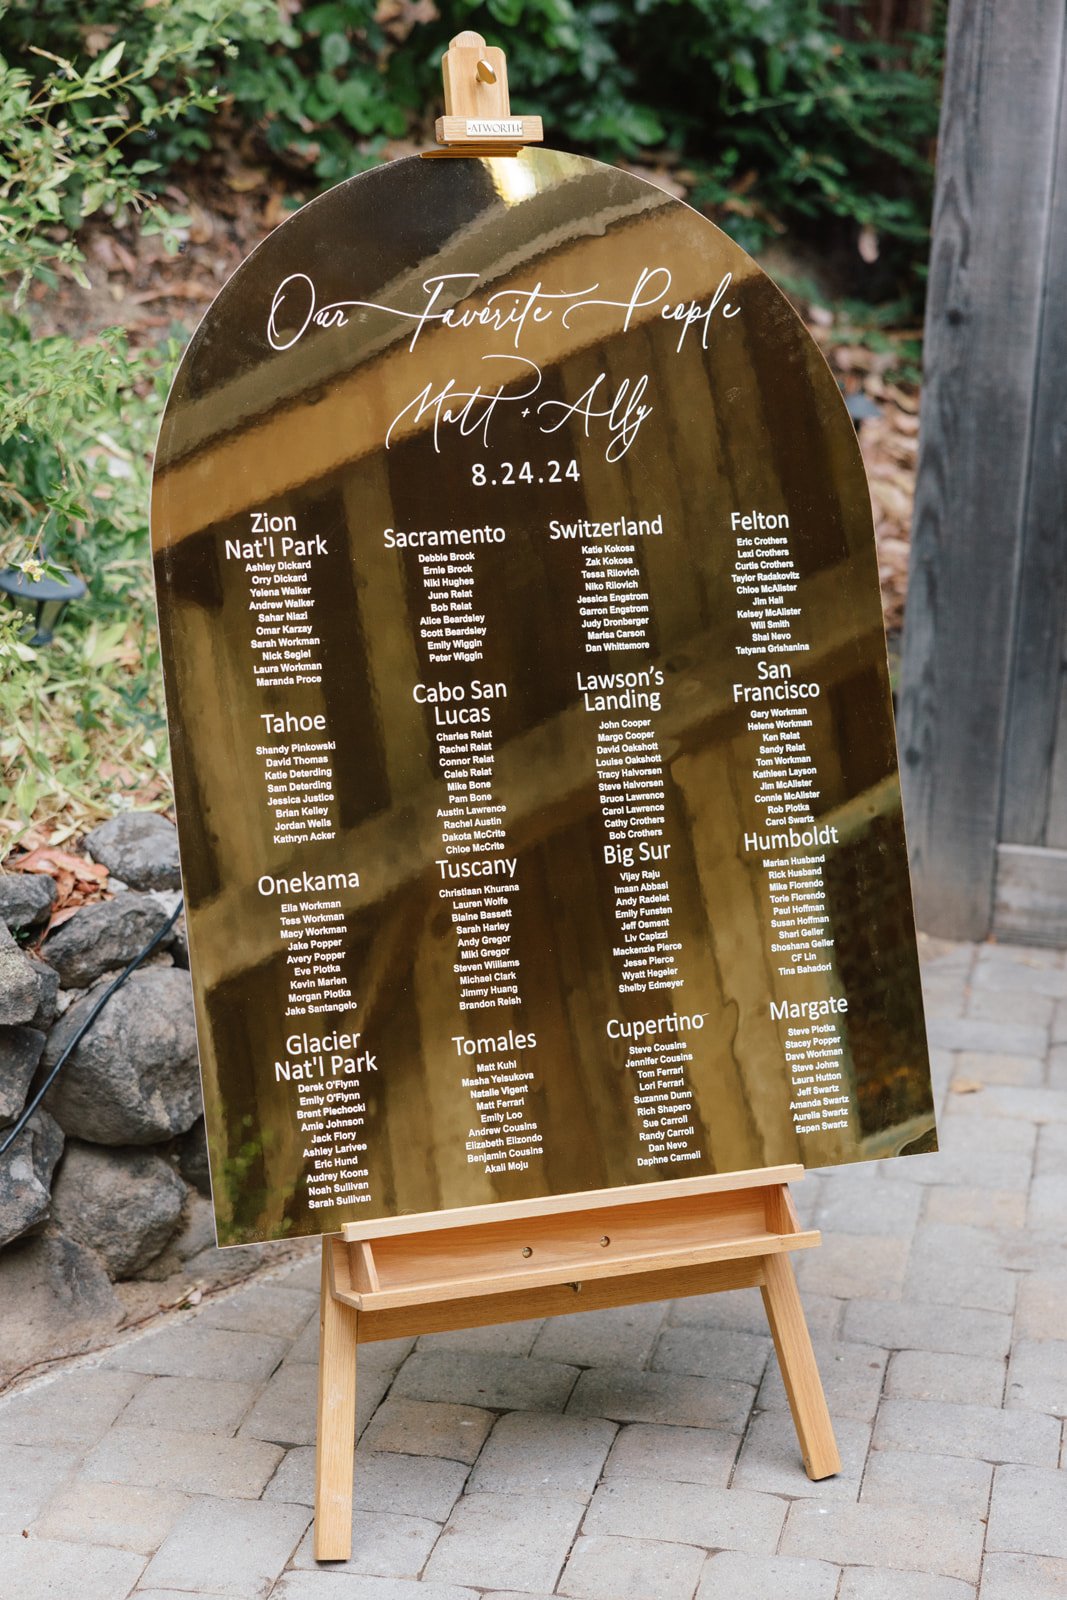 ATWORTH
Our Favorite People
Matt + Ally
8.24.24
Zion
Nat'l Park
Ashley Dickard
Orry Dickard
Yelena Walker
Andrew Walker
Sahar Niazi
Omar Karzay
Sarah Workman
Nick Segiel
Laura Workman
Maranda Proce
Tahoe
Shandy Pinkowski
David Thomas
Katie Deterding
Sam Deterding
Jessica Justice
Brian Kelley
Jordan Wells
Kathryn Acker
Onekama
Ella Workman
Tess Workman
Macy Workman
Jake Popper
Avery Popper
Eve Plotka
Kevin Marien
Morgan Plotka
Jake Santangelo
Glacier
Nat'l Park
Derek O'Flynn
Emily O'Flynn
Brent Piechocki
Amie Johnson
Jack Flory
Ashley Larivee
Eric Hund
Audrey Koons
Noah Sullivan
Sarah Sullivan
Sacramento
Debbie Brock
Ernie Brock
Niki Hughes
June Relat
Bob Relat
Alice Beardsley
Scott Beardsley
Emily Wiggin
Peter Wiggin
Cabo San
Lucas
Charles Relat
Rachel Relat
Connor Relat
Caleb Relat
Mike Bone
Pam Bone
Austin Lawrence
Rachel Austin
Dakota McCrite
Chloe McCrite
Tuscany
Christiaan Khurana
Lauren Wolfe
Blaine Bassett
Sarah Harley
Andy Gregor
Miki Gregor
Steven Williams
Michael Clark
Jimmy Huang
Brandon Reish
Tomales
Matt Kuhl
Masha Yelsukova
Natalie Vigent
Matt Ferrari
Emily Loo
Andrew Cousins
Elizabeth Elizondo
Benjamin Cousins
Akali Moju
Switzerland
Katie Kokosa
Zak Kokosa
Tessa Rilovich
Niko Rilovich
Jessica Engstrom
Garron Engstrom
Judy Dronberger
Marisa Carson
Dan Whittemore
Lawson's
Landing
John Cooper
Margo Cooper
David Oakshott
Louise Oakshott
Tracy Halvorsen
Steve Halvorsen
Bruce Lawrence
Carol Lawrence
Cathy Crothers
Bob Crothers
Big Sur
Vijay Raju
Imaan Abbasi
Andy Radelet
Emily Funsten
Jeff Osment
Liv Capizzi
Mackenzie Pierce
Jesse Pierce
Wyatt Hegeler
Shelby Edmeyer
Cupertino
Steve Cousins
Jennifer Cousins
Tom Ferrari
Lori Ferrari
Suzanne Dunn
Rich Shapero
Sue Carroll
Randy Carroll
Dan Nevo
Daphne Carmeli
Felton
Eric Crothers
Lexi Crothers
Curtis Crothers
Taylor Radakovitz
Chloe McAlister
Jim Hall
Kelsey McAlister
Will Smith
Shai Nevo
Tatyana Grishanina
San
Francisco
Gary Workman
Helene Workman
Ken Relat
Sandy Relat
Tom Workman
Kathleen Layson
Jim McAlister
Connie McAlister
Rob Plotka
Carol Swartz
Humboldt
Marian Husband
Rick Husband
Mike Florendo
Torie Florendo
Paul Hoffman
Susan Hoffman
Shari Geller
Shoshana Geller
CF Lin
Tina Bahadori
Margate
Steve Plotka
Stacey Popper
Dave Workman
Steve Johns
Laura Hutton
Jeff Swartz
Amanda Swartz
Aurelia Swartz
Espen Swartz